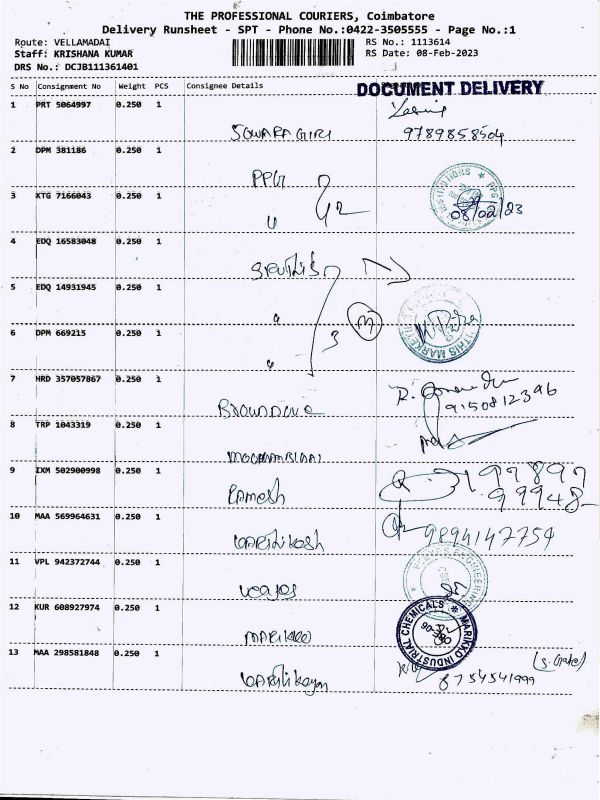 THE PROFESSIONAL COURIERS, Coimbatore
Delivery Runsheet - SPT - Phone No.:0422-3505555 - Page No.:1
Route: VELLAMADAI
Staff: KRISHANA KUMAR
DRS No.: DCJB111361401
RS No.: 1113614
RS Date: 08-Feb-2023
S No Consignment No Weight PCS Consignee Details
DOCUMENT DELIVERY
1 PRT 5064997 0.250 1
9789858504
2 DPM 381186 0.250 1
PPG
3 KTG 7166043 0.250 1
08/02/23
4 EDQ 16583048 0.250 1
5 EDQ 14931945 0.250 1
3
6 DPM 669215 0.250 1
7 HRD 357057867 0.250 1
9150812396
8 TRP 1043319 0.250 1
9 IXM 502900998 0.250 1
Ramesh
10 MAA 569964631 0.250 1
9894147754
11 VPL 942372744 0.250 1
12 KUR 608927974 0.250 1
MARIKKO
MARIKKO INDUSTRIAL CHEMICALS
13 MAA 298581848 0.250 1
Karthikeyan
8754541999